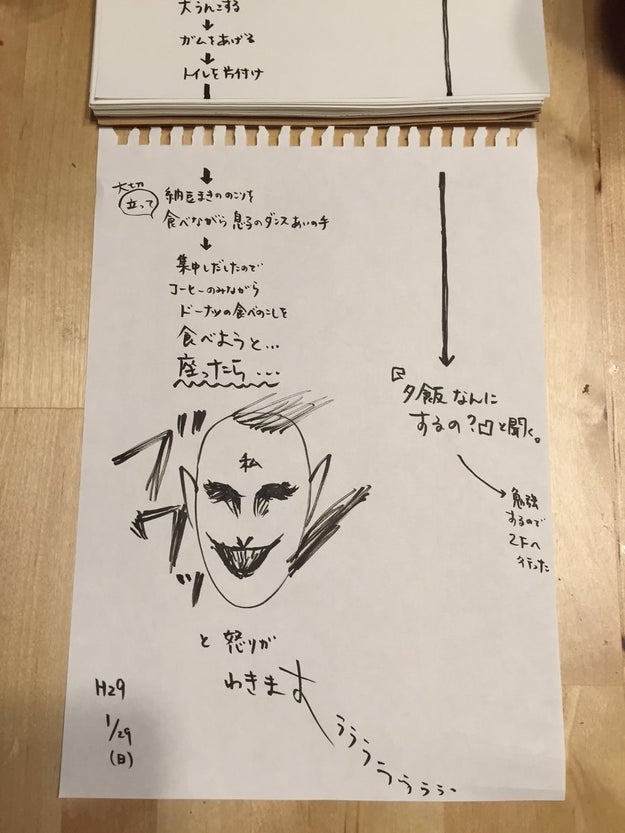 大うんこする
↓
ガムをあげる
↓
トイレを片付け
↓
大切
立って
納豆まきののこりを
食べながら 息子のダンスあいの手
↓
集中しだしたので
コーヒーのみながら
ドーナツの食べのこしを
食べようと...
座ったら...
『夕飯なんに
するの?』と聞く。
勉強
するので
2Fへ
行った
私
ブワッ
と 怒りが
わきます
ぅぅぅぅぅぅぅー
H29
1/29
(日)